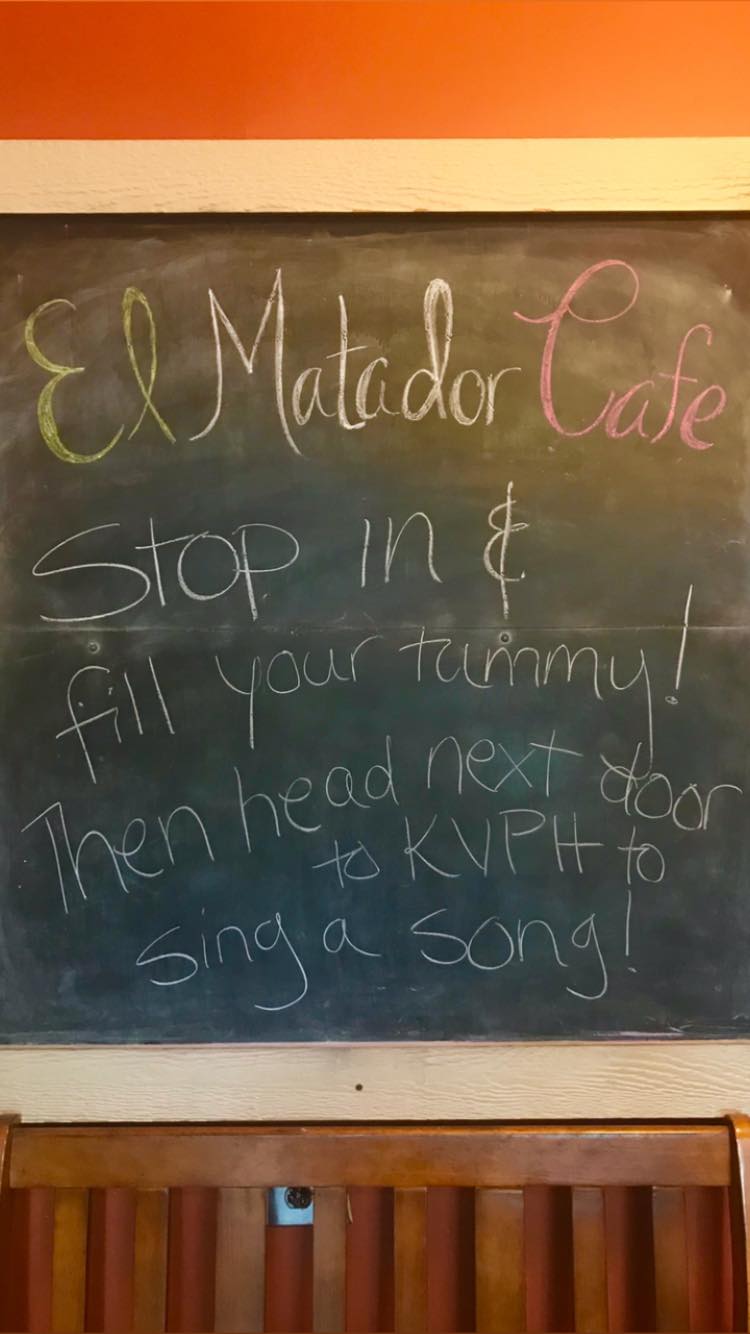 El Matador Cafe
Stop in &
fill your tummy!
Then head next door
to KVPH to
sing a song!